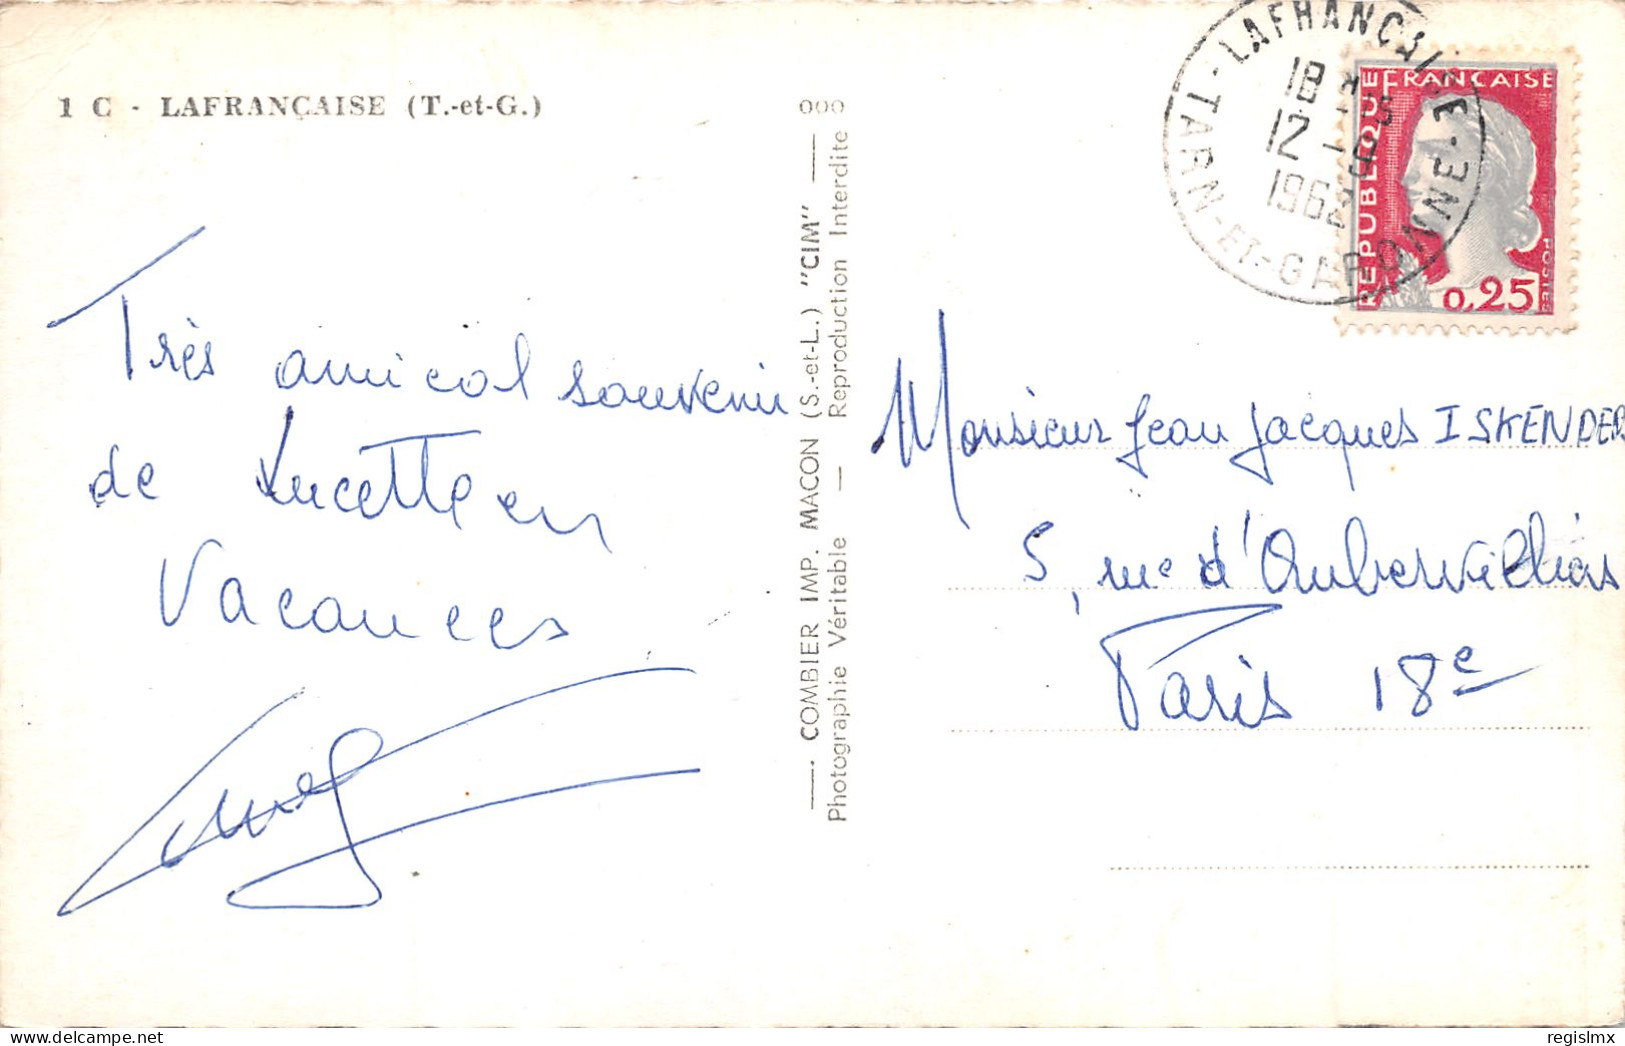 1 C - LAFRANÇAISE (T.-et-G.)
Très amical souvenir
de Lucette en
Vacances
COMBIER IMP. MACON (S.-et-L.) "CIM"
Photographie Véritable — Reproduction Interdite
LAFRANÇAISE
TARN-ET-GARONNE
18 H
12 -
1962
REPUBLIQUE FRANÇAISE
POSTES
0,25
Monsieur Jean Jacques ISKENDER
5, rue d'Aubervilliers
Paris 18e
regislmx